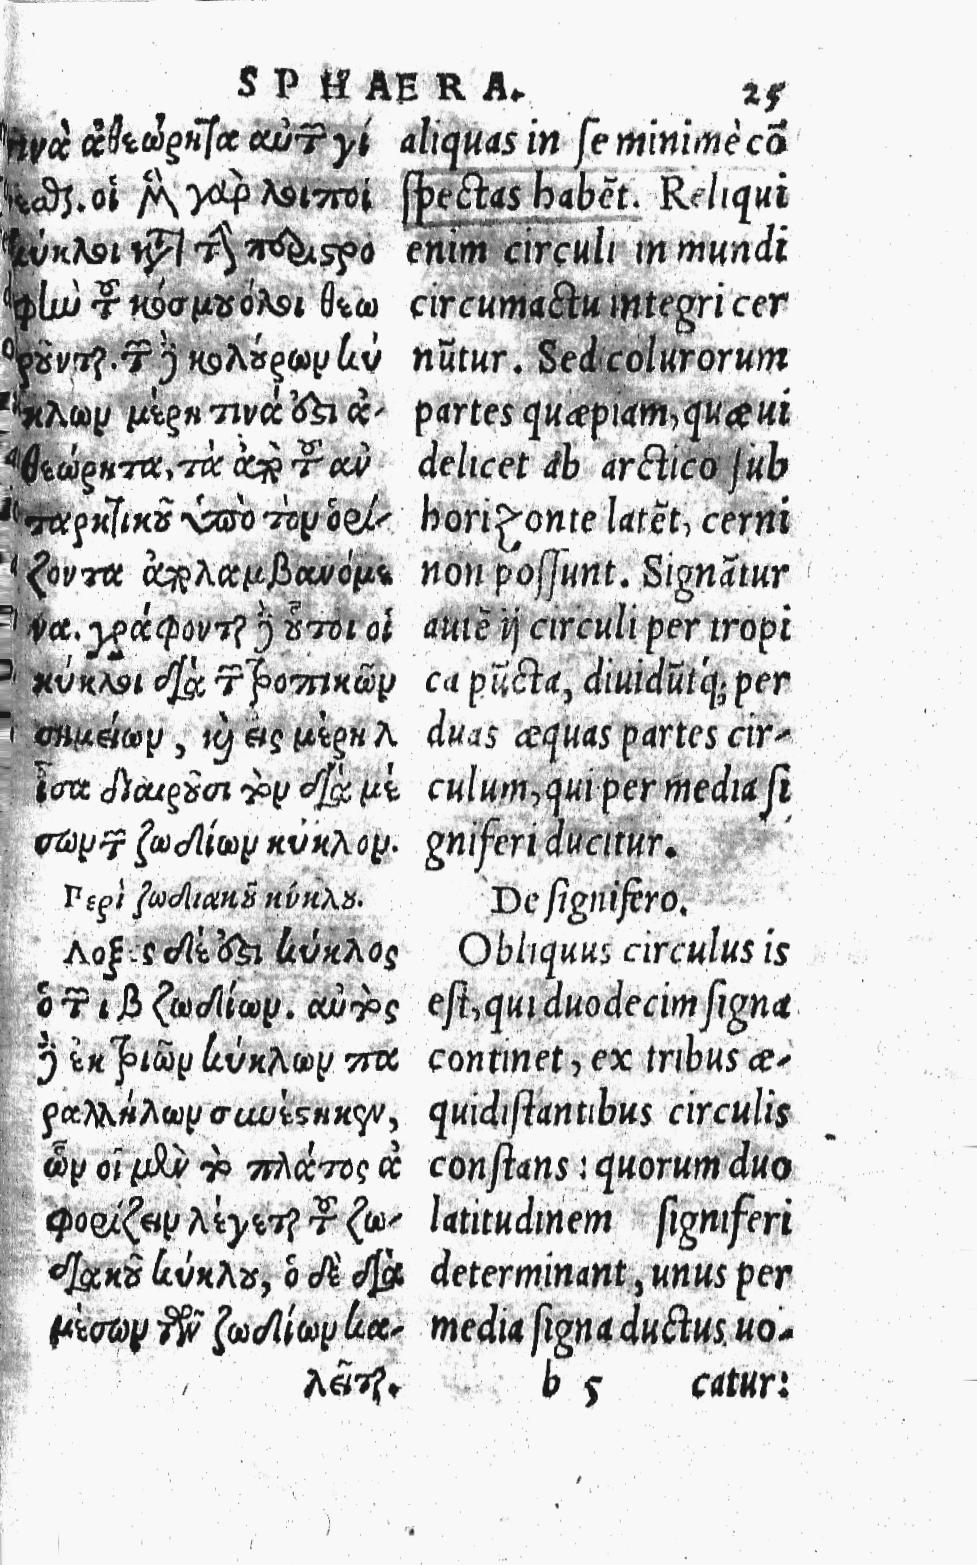 SPHAERA. 25
τινὰ ἀθεώρητα αὐτῶν γί
νεσθαι. οἱ μὲν γὰρ λοιποὶ
κύκλοι κατὰ τὴν περιστρο
φὴν τοῦ κόσμου ὅλοι θεω
ροῦνται. τῶν δὲ κολούρων κύ
κλων μέρη τινά ἐστι ἀ-
θεώρητα, τὰ ἀπὸ τοῦ αν
ταρκτικοῦ ὑπὸ τὸν ὁρί-
ζοντα ἀπολαμβανόμε
να. γράφονται δὲ οὗτοι οἱ
κύκλοι διὰ τῶν τροπικῶν
σημείων, καὶ εἰς μέρη λ
ἴσα διαιροῦσι τὸν διὰ μέ
σων τῶν ζωδίων κύκλον.
Περὶ ζωδιακοῦ κύκλου.
Λοξὸς δέ ἐστι κύκλος
ὁ τῶν ιβ ζωδίων. αὐτὸς
δὲ ἐκ τριῶν κύκλων πα
ραλλήλων συνέστηκεν,
ὧν οἱ μὲν τὸ πλάτος ἀ
φορίζειν λέγεται τοῦ ζω-
διακοῦ κύκλου, ὁ δὲ διὰ
μέσων τῶν ζωδίων κα-
λεῖται.
aliquas in se minimè cō
spectas habēt. Reliqui
enim circuli in mundi
circumactu integri cer
nūtur. Sed colurorum
partes quæpiam, quæ ui
delicet ab arctico sub
horizonte latēt, cerni
non possunt. Signātur
autē ij circuli per tropi
ca pūcta, diuidūtq́; per
duas æquas partes cir-
culum, qui per media si
gniferi ducitur.
De signifero.
Obliquus circulus is
est, qui duodecim signa
continet, ex tribus æ-
quidistantibus circulis
constans: quorum duo
latitudinem signiferi
determinant, unus per
media signa ductus uo-
b 5 catur: